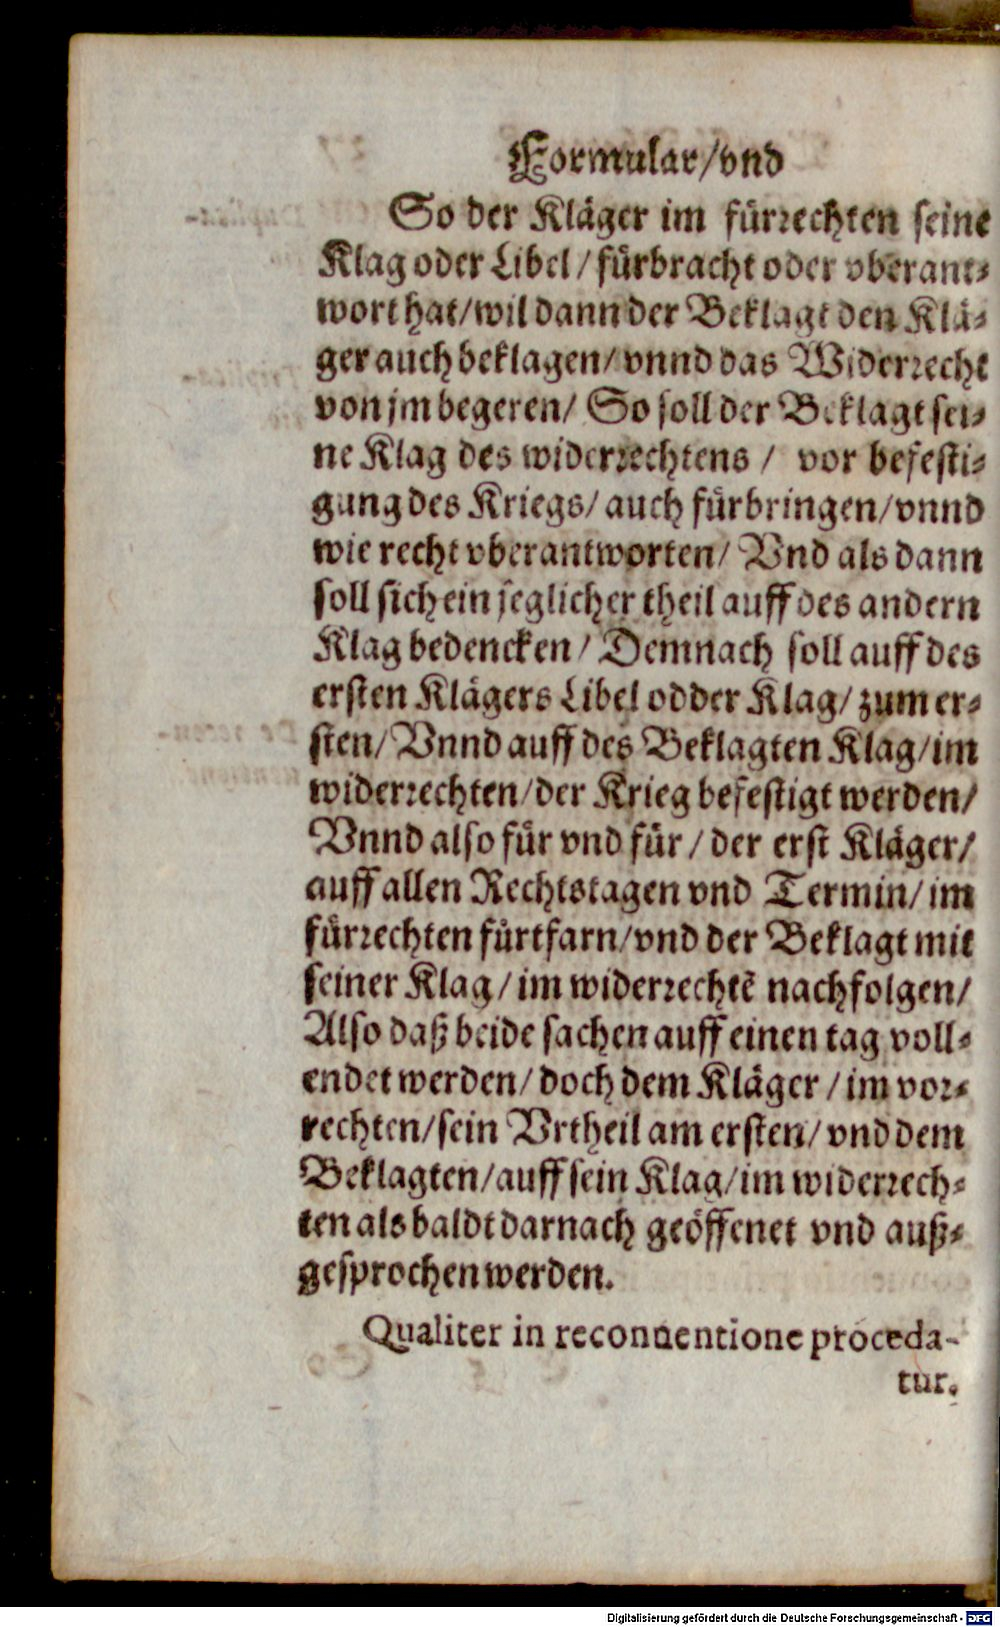 Formular/vnd
So der Kläger im fürrechten seine
Klag oder Libel/fürbracht oder vberant-
wort hat/wil dann der Beklagt den Klä-
ger auch beklagen/vnnd das Widerrecht
von jm begeren/ So soll der Beklagt sei-
ne Klag des widerrechtens / vor befesti-
gung des Kriegs/auch fürbringen/vnnd
wie recht vberantworten/ Vnd als dann
soll sich ein jeglicher theil auff des andern
Klag bedencken/Demnach soll auff des
ersten Klägers Libel odder Klag/zum er-
sten/Vnnd auff des Beklagten Klag/im
widerrechten/der Krieg befestigt werden/
Vnnd also für vnd für/der erst Kläger/
auff allen Rechtstagen vnd Termin/im
fürrechten fürtfarn/vnd der Beklagt mit
seiner Klag/im widerrechtē nachfolgen/
Also daß beide sachen auff einen tag voll-
endet werden/doch dem Kläger/im vor-
rechten/sein Vrtheil am ersten/vnd dem
Beklagten/auff sein Klag/im widerrech-
ten als baldt darnach geöffenet vnd auß-
gesprochen werden.
Qualiter in reconuentione proceda-
tur.
Digitalisierung gefördert durch die Deutsche Forschungsgemeinschaft - DFG